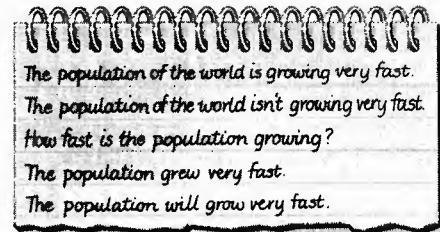 The population of the world is growing very fast.
The population of the world isn't growing very fast.
How fast is the population growing?
The population grew very fast.
The population will grow very fast.